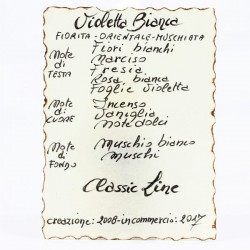 Violetta Bianca
FIORITA - ORIENTALE - MUSCHIATA
Note di TESTA
Fiori bianchi
Narciso
Fresia
Rosa bianca
Foglie violetta
Note di CUORE
Incenso
Vaniglia
Note dolci
Note di FONDO
Muschio bianco
muschi
Classic Line
creazione: 2008 - in commercio: 2017